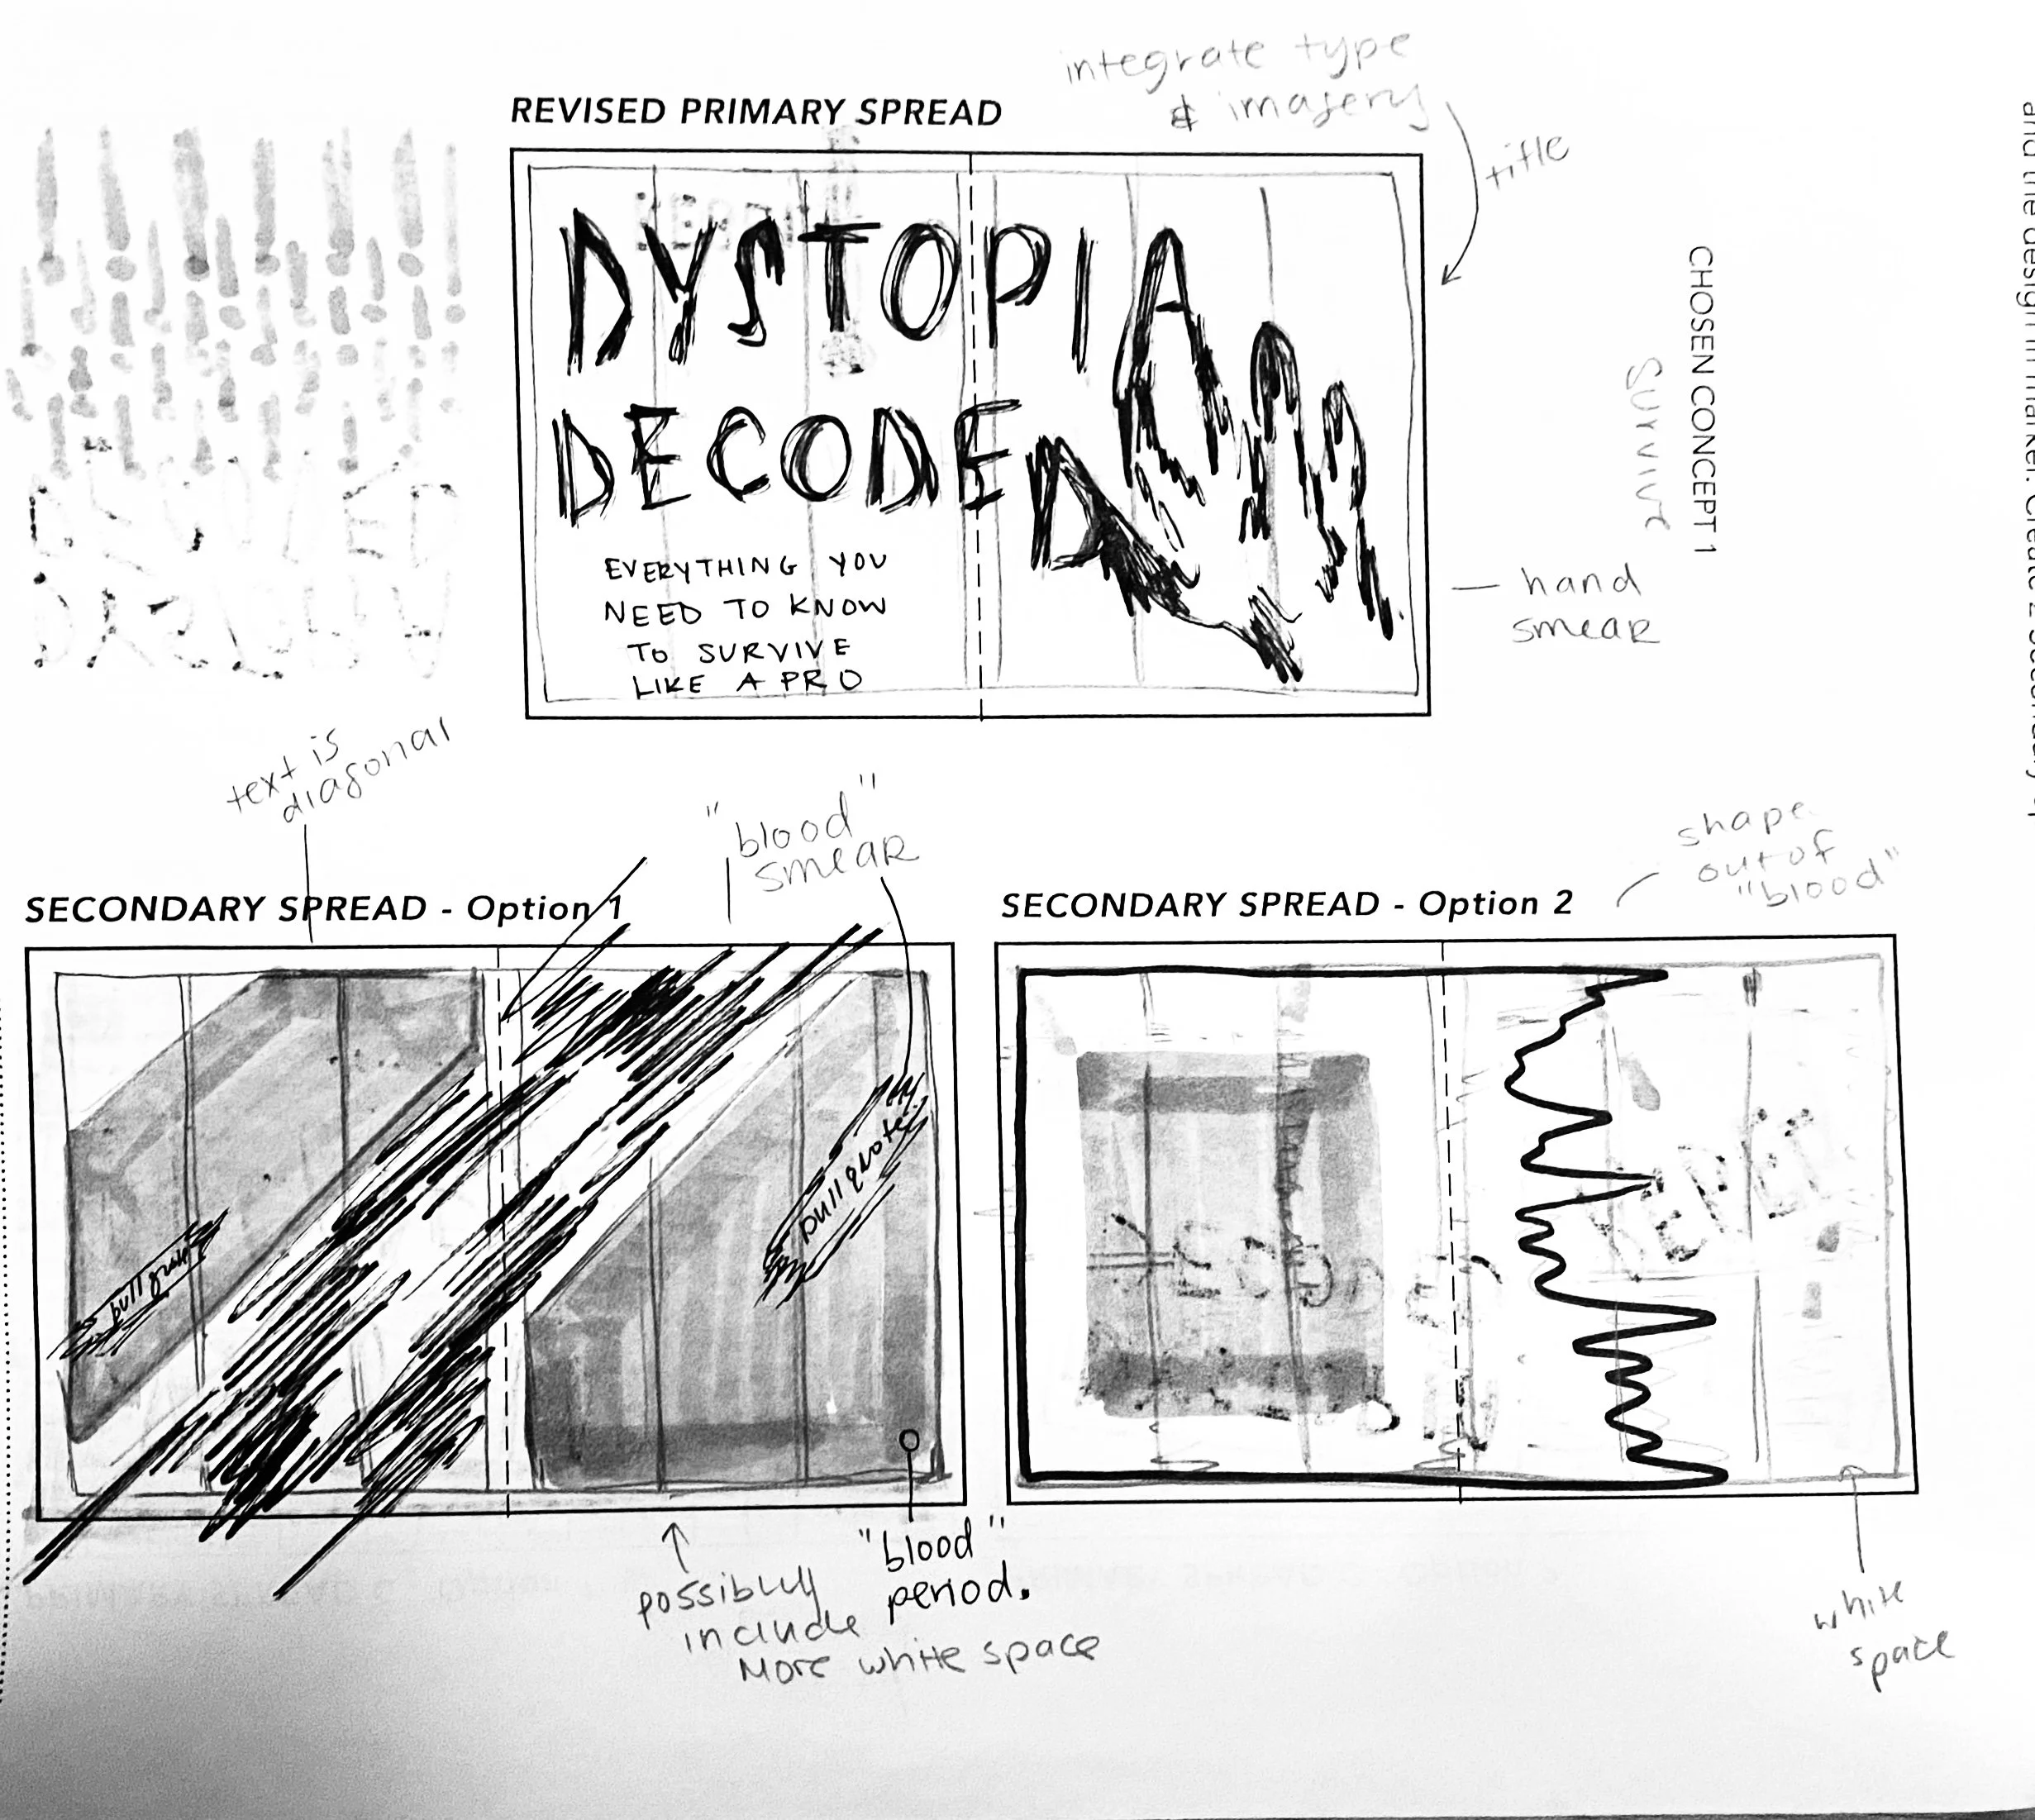 integrate type
& imagery
title
REVISED PRIMARY SPREAD
DYSTOPIA
DECODED
EVERYTHING YOU
NEED TO KNOW
TO SURVIVE
LIKE A PRO
hand
smear
CHOSEN CONCEPT 1
Survive
text is
diagonal
"blood"
smear
SECONDARY SPREAD - Option 1
pull quote
pull quote
"blood"
period.
possibly
include
more white space
shape
out of
"blood"
SECONDARY SPREAD - Option 2
white
space